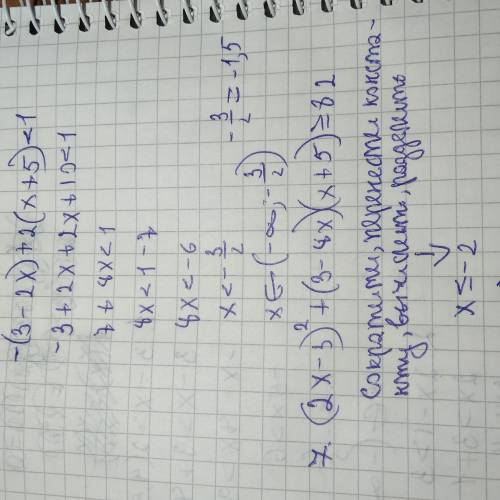 -(3-2x)+2(x+5)<1
-3+2x+2x+10<1
7+4x<1
4x<1-7
4x<-6
x<-3/2
-3/2=-1,5
x∈(-∞;-3/2)
7. (2x-3)²+(3-4x)(x+5)≥82
Сократить, перенести конста-
нту, вычислить, разделить
↓
x≤-2